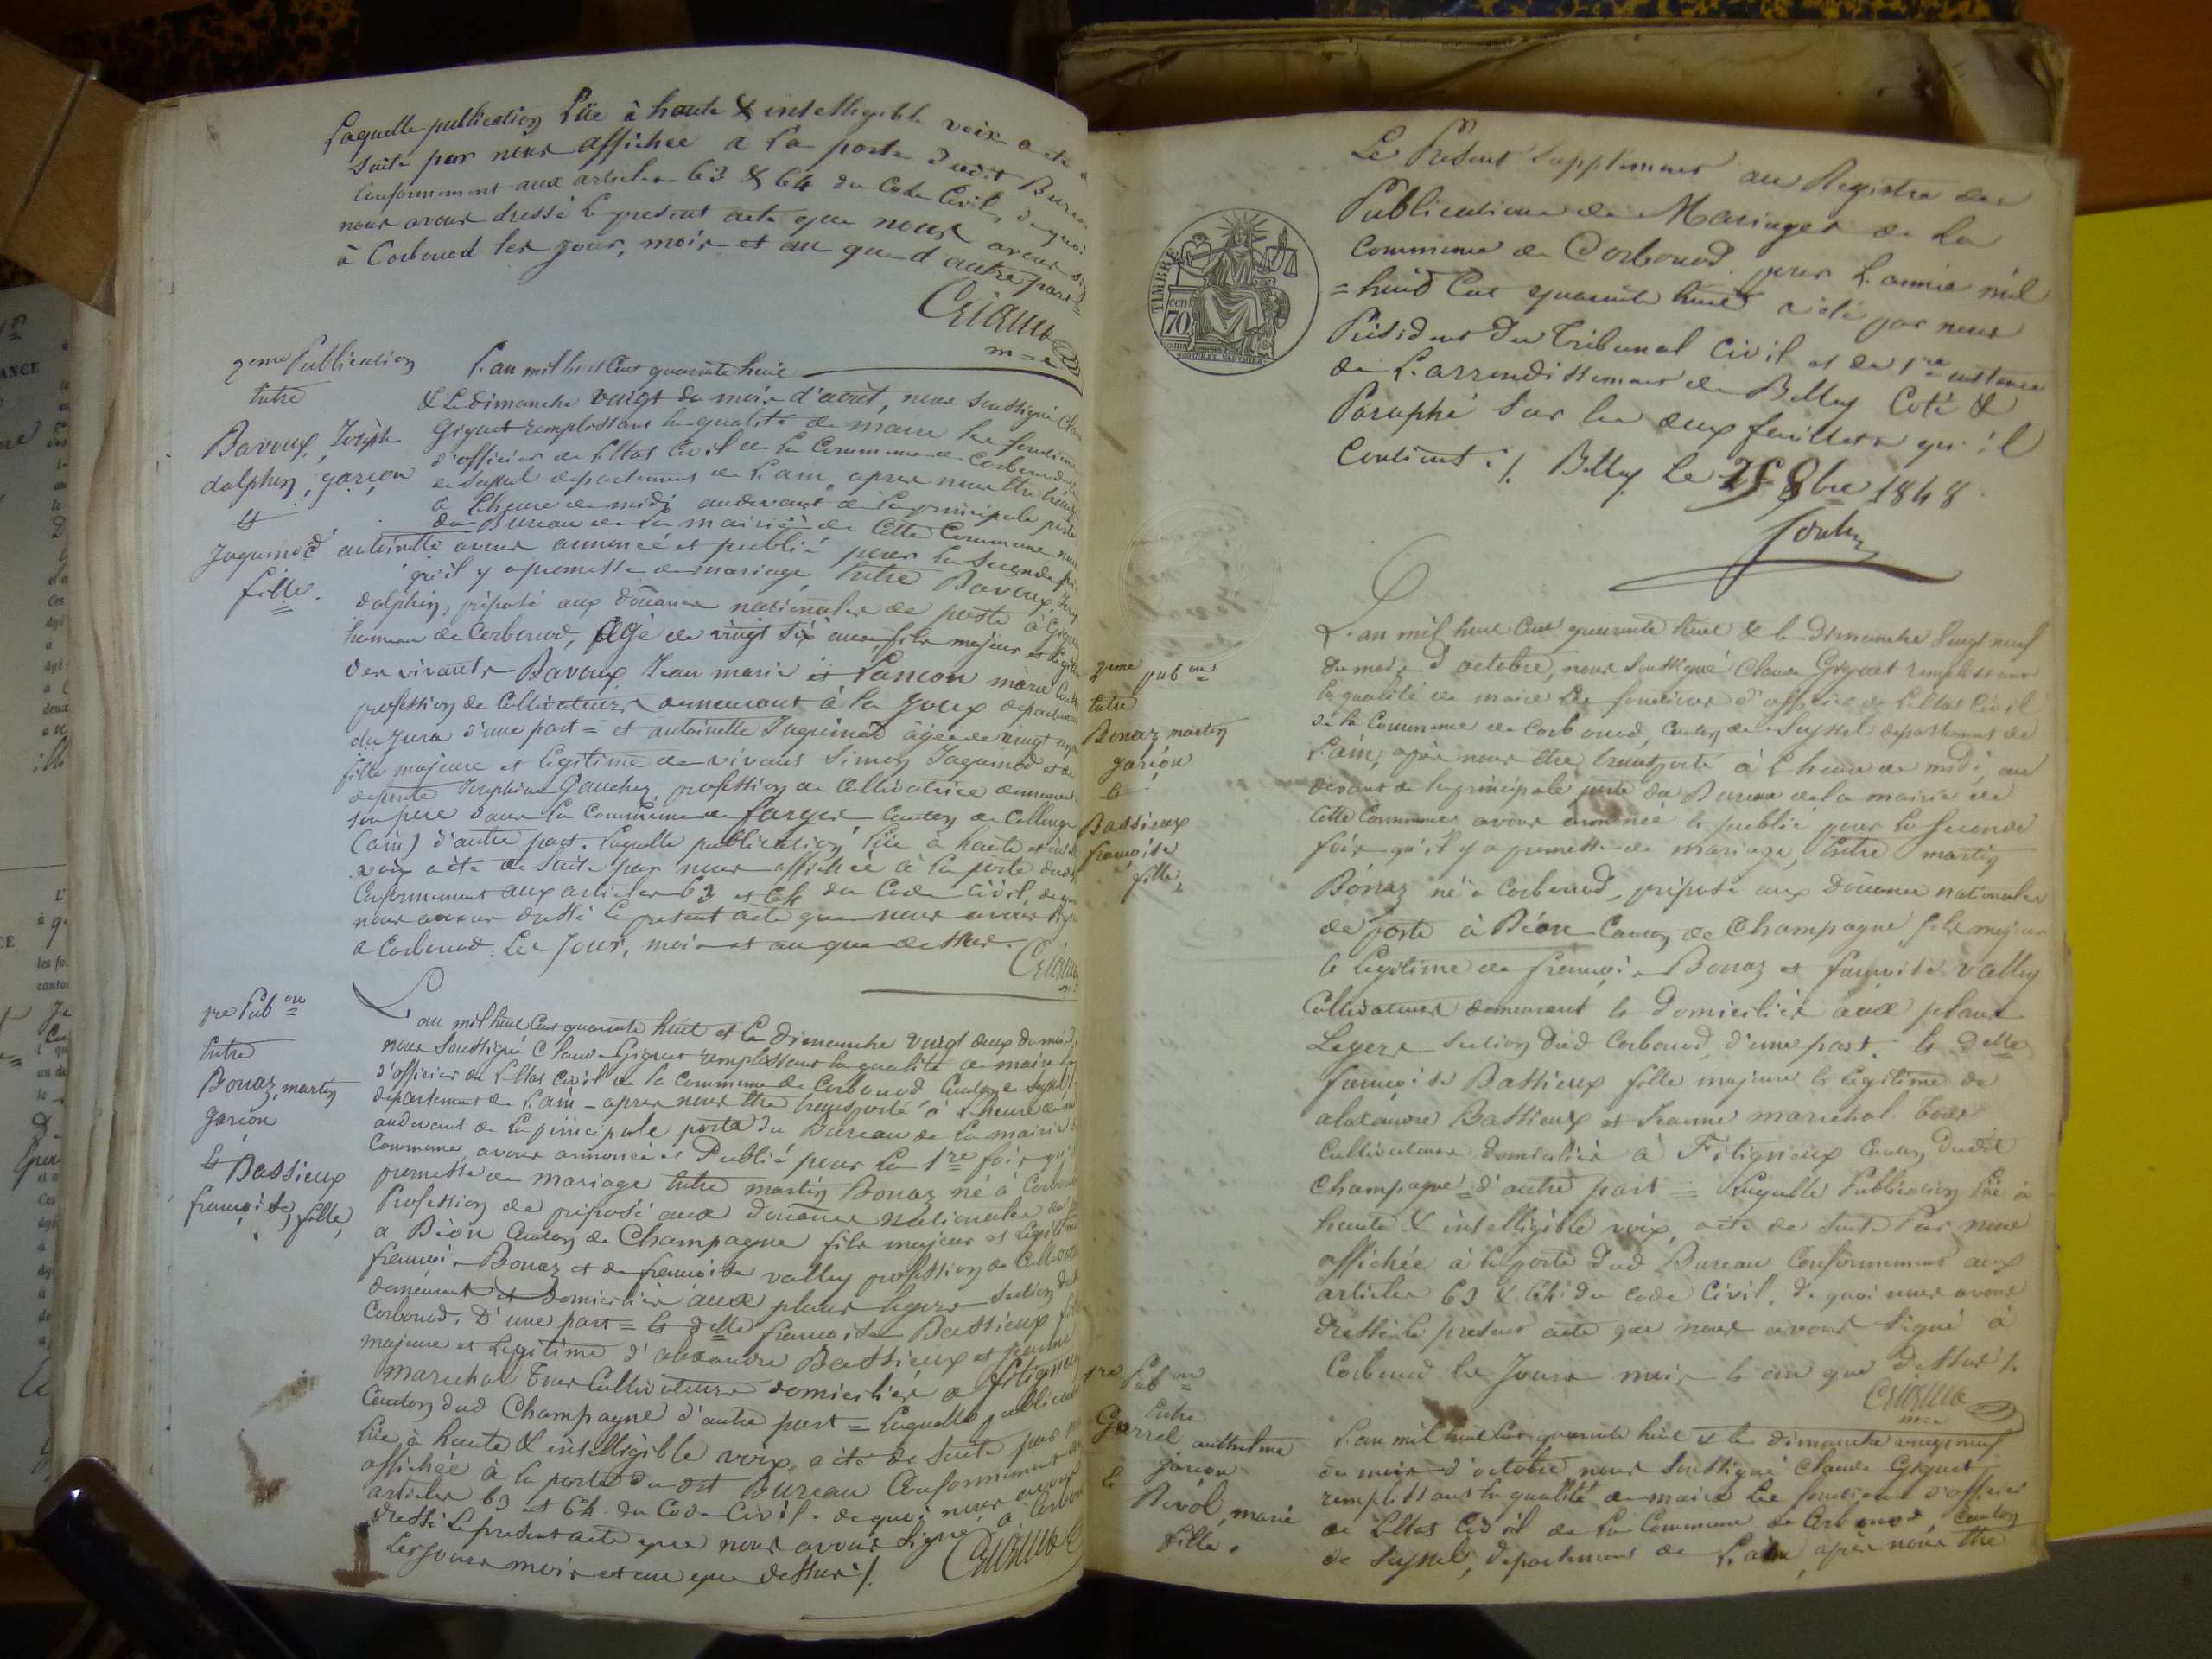 Laquelle publication Lüe à haute & intelligible voix a été
suite par nous affichée a la porte dudit Bureau
Conformement aux articles 63 & 64 du Code Civil, de quoi
nous avons dressé le present acte que nous avons
à Corbonod les jour, mois et an que d'autre part
2eme Publication
Entre
Bavoux, Joseph
dolphin, garçon
&
Jaquinod antoinette
fille.
L'an mil huit Cent quarante huit
& Le dimanche vingt du mois d'aout, nous Soussigné
Giguet remplissant la qualité de maire les fonctions
d'officier de L'Etat Civil de la Commune de Corbonod
de Seyssel departement de L'ain, apres nous être
à L'heure de midi audevant de la principale porte
du Bureau de la mairie de Cette Commune
avons annoncé et publié pour la Seconde
qu'il y a promesse de mariage, Entre Bavoux,
dolphin, préposé aux doüanes nationales de poste à
hameau de Corbonod, Agé de vingt six ans, fils majeur et
des vivants Bavoux Jean marie et Lancon marie
profession de Cultivateurs demeurant à la Joux departement
du Jura d'une part = et antoinette Jaquinod âgée de vingt
fille majeure et legitime de vivant Simon Jaquinod et de
defunte Josephine Gauchez, profession de Cultivatrice
son pere dans la Commune de farges Canton de Collonge
(ain) d'autre part. Laquelle publication Lüe à haute et
voix a été de Suite par nous affichée à la porte dudit
Conformement aux articles 63 et 64 du Code Civil, de quoi
nous avons dressé le present acte que nous avons
a Corbonod Les Jour, mois et an que dessus.
1re Pub.on
Entre
Bonaz, martin
garçon
& Bassieux
françoise, fille,
L'an mil huit Cent quarante huit et le dimanche vingt deux du mois
nous Soussigné Claude Giguet remplissant la qualité de maire
d'officier de L'Etat Civil de la Commune de Corbonod, Canton de Seyssel
departement de L'ain - apres nous être transporté à L'heure de
audevant de la principale porte du Bureau de la mairie
Commune, avons annoncé et Publié pour la 1re fois
promesse de mariage Entre martin Bonaz né à
Profession de préposé aux doüanes Nationales de
a Béon Canton de Champagne fils majeur et
françois Bonaz et de françoise valley profession de
demeurant et domicilié aux planes legers Section
Corbonod. D'une part = & delle françoise Bassieux
majeure et Legitime d'alexandre Bassieux et
marechal Tous Cultivateurs domiciliés a
Canton dud Champagne d'autre part = Laquelle
Lüe à haute & intelligible voix a été de Suite par
affichée à la porte du dit Bureau Conformement
articles 63 et 64 du Code Civil. de quoi nous avons
dressé Le present acte que nous avons Signé à
Les Jours mois et an que dessus ./.
Le Présent Supplément au Registre des
Publications de Mariages de La
Commune de Corbonod, pour L'année mil
= huit Cent quarante huit a été par nous
Président du Tribunal Civil et de 1re instance
de L'arrondissement de Belley Coté &
Paraphé Sur les deux feuillets qu'il
Contient ./. Belley Le 25 8bre 1848
TIMBRE
cen
70.
2eme pub.on
Entre
Bonaz martin
garçon
&
Bassieux
françoise
fille,
L'an mil huit Cent quarante huit & le Dimanche Vingt neuf
du mois d'octobre, nous Soussigné Claude Giguet remplissant
la qualité de maire Les fonctions d'officier de L'Etat Civil
de la Commune de Corbonod, Canton de Seyssel departement de
L'ain, après nous être transporté à L'heure de midi, au
devant de la principale porte du Bureau de la mairie de
Cette Commune avons annoncé & publié pour la Seconde
fois qu'il y a promesse de Mariage, Entre martin
Bonaz né à Corbonod, préposé aux Doüanes nationales
de poste à Béon Canton de Champagne fils majeur
& legitime de françois Bonaz et françoise valley
Cultivateurs demeurant & Domicilié aux planes
Legers Section dud Corbonod, d'une part. & Delle
françoise Bassieux fille majeure & Legitime de
alexandre Bassieux et Jeanne marechal Tous
Cultivateurs Domiciliés à Fitignieux Canton dudit
Champagne = d'autre part = Laquelle Publication Lüe à
haute & intelligible voix, a été de Suite Par nous
affichée à la porte dud Bureau Conformement aux
articles 63 & 64 du Code Civil. de quoi nous avons
dressé le present acte que nous avons Signé à
Corbonod les Jours mois & an que dessus ./.
1re Pub.on
Entre
anthelme
garçon
&
Révol, marie
fille.
L'an mil huit Cent quarante huit & le dimanche vingt neuf
du mois d'octobre nous Soussigné Claude Giguet
remplissant la qualité de maire Les fonctions d'officier
de L'Etat Civil de la Commune de Corbonod, Canton
de Seyssel, departement de L'ain, après nous être